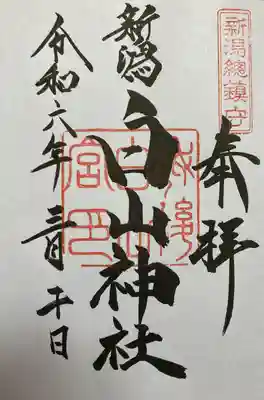 新潟總鎮守
奉拝
越後
白山
宮印
新潟
白山神社
令和六年三月二十日